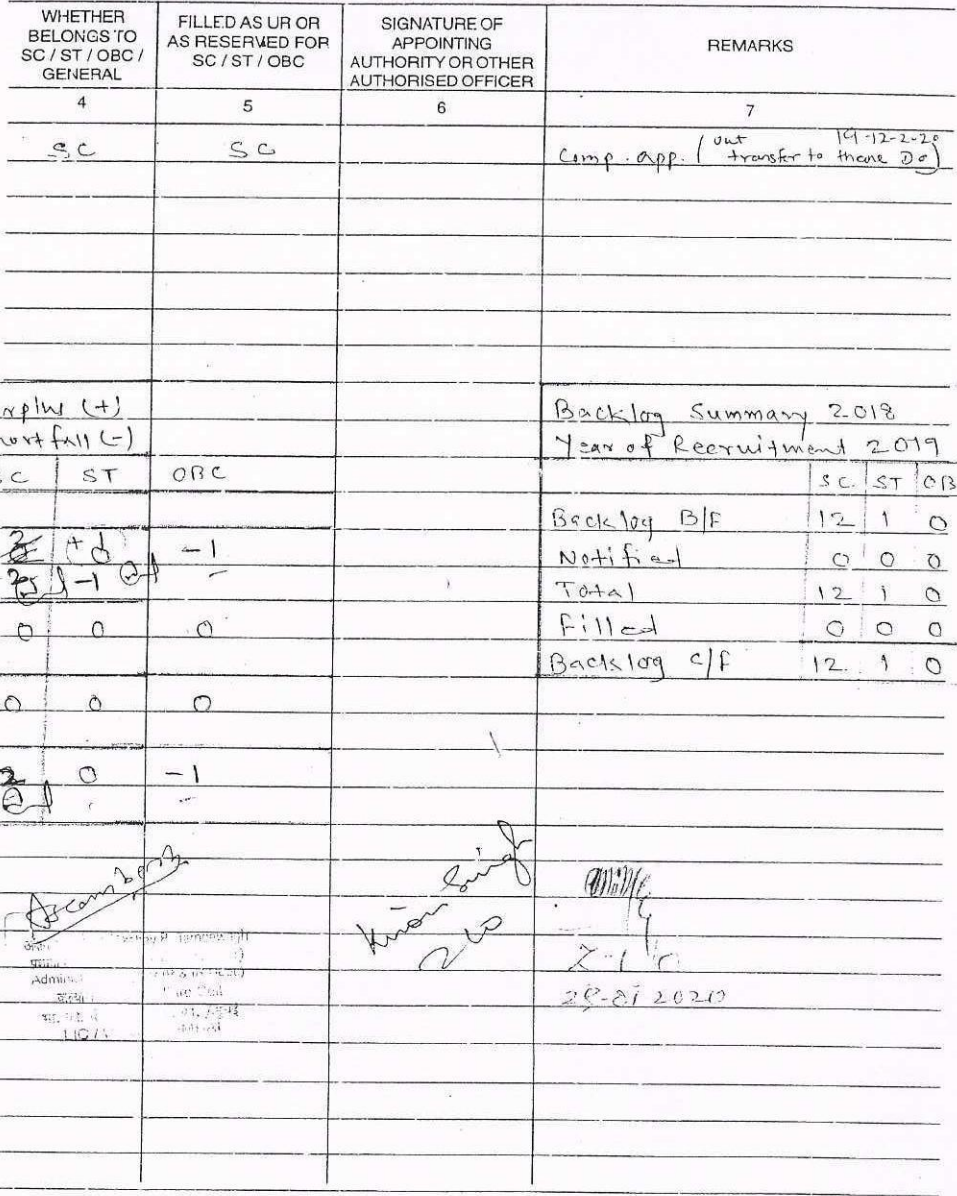 WHETHER BELONGS TO SC / ST / OBC / GENERAL
FILLED AS UR OR AS RESERVED FOR SC / ST / OBC
SIGNATURE OF APPOINTING AUTHORITY OR OTHER AUTHORISED OFFICER
REMARKS
4 5 6 7
SC SC Comp. app. (out transfer to thane Do)
(+)
(-)
ST OBC
-1
-1
0 0 0
0 0 0
2 0 -1
Backlog Summary 2018
Year of Recruitment 2019
SC ST OB
Backlog B/F 12 1 0
Notified 0 0 0
Total 12 1 0
Filled 0 0 0
Backlog C/F 12 1 0
Singh
Admini